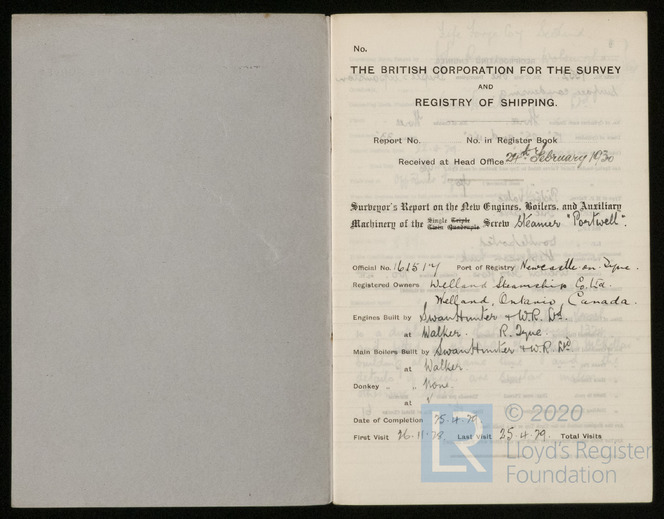 No.
THE BRITISH CORPORATION FOR THE SURVEY
AND
REGISTRY OF SHIPPING.
Report No. No. in Register Book
Received at Head Office 24th February 1930
Surveyor's Report on the New Engines, Boilers, and Auxiliary
Machinery of the Single Triple Twin Quadruple Screw Steamer "Portwell".
Official No. 161517 Port of Registry Newcastle on Tyne.
Registered Owners Welland Steamship Co. Ltd.
Welland, Ontario Canada.
Engines Built by Swan Hunter & W.R. Ld.
at Walker. R. Tyne.
Main Boilers Built by Swan Hunter & W.R. Ld
at Walker
Donkey " " None.
at
Date of Completion 25.4.29.
First Visit 26.11.28. Last Visit 25.4.29. Total Visits
LR
© 2020
Lloyd's Register
Foundation